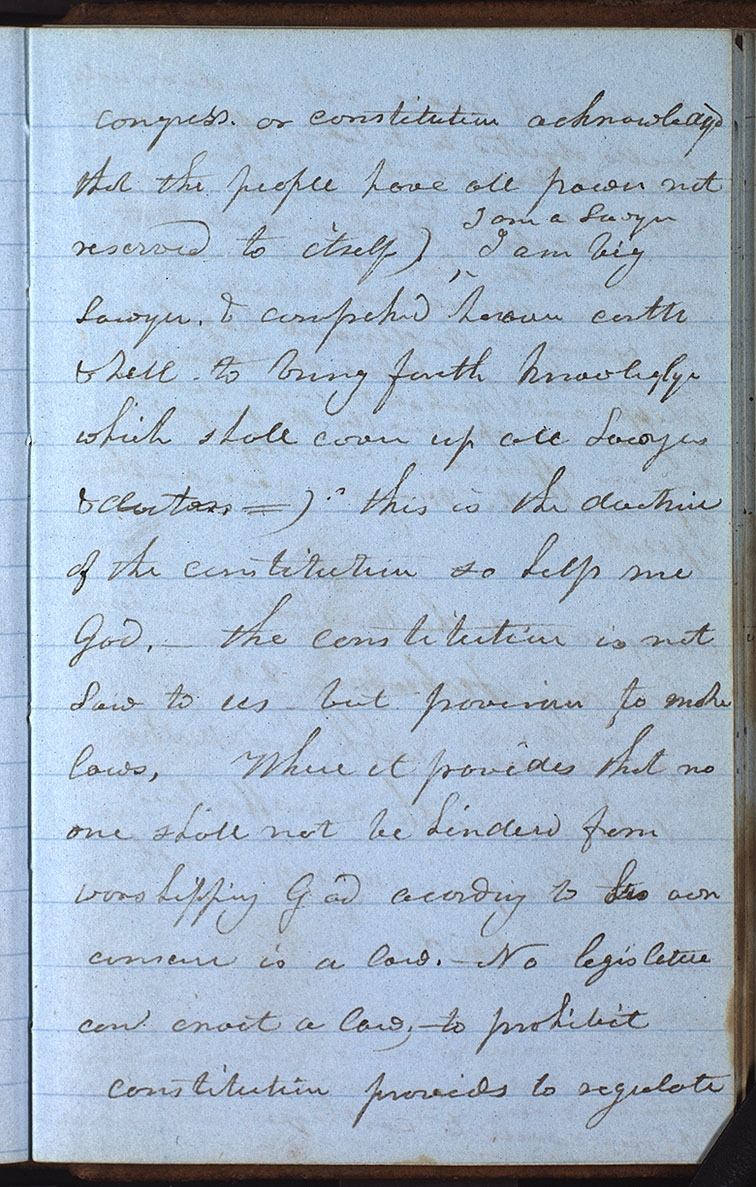 congress. or constitution acknowledgd
that the people have all power not
reserved to itself)
I am a Lawyer
I am big
Lawyer. & comprehd heaven earth
& hell to bring forth knowledge
which shall cover up all Lawyers
& doctors =) this is the doctrine
of the constitution so help me
God. — the constitution is not
Law to us but provision to make
laws, Where it provides that no
one shall not be hinderd from
worshipping God acording to his own
is a law. — No legislature
can enact a law, — to prohibit
constitution provids to regulate